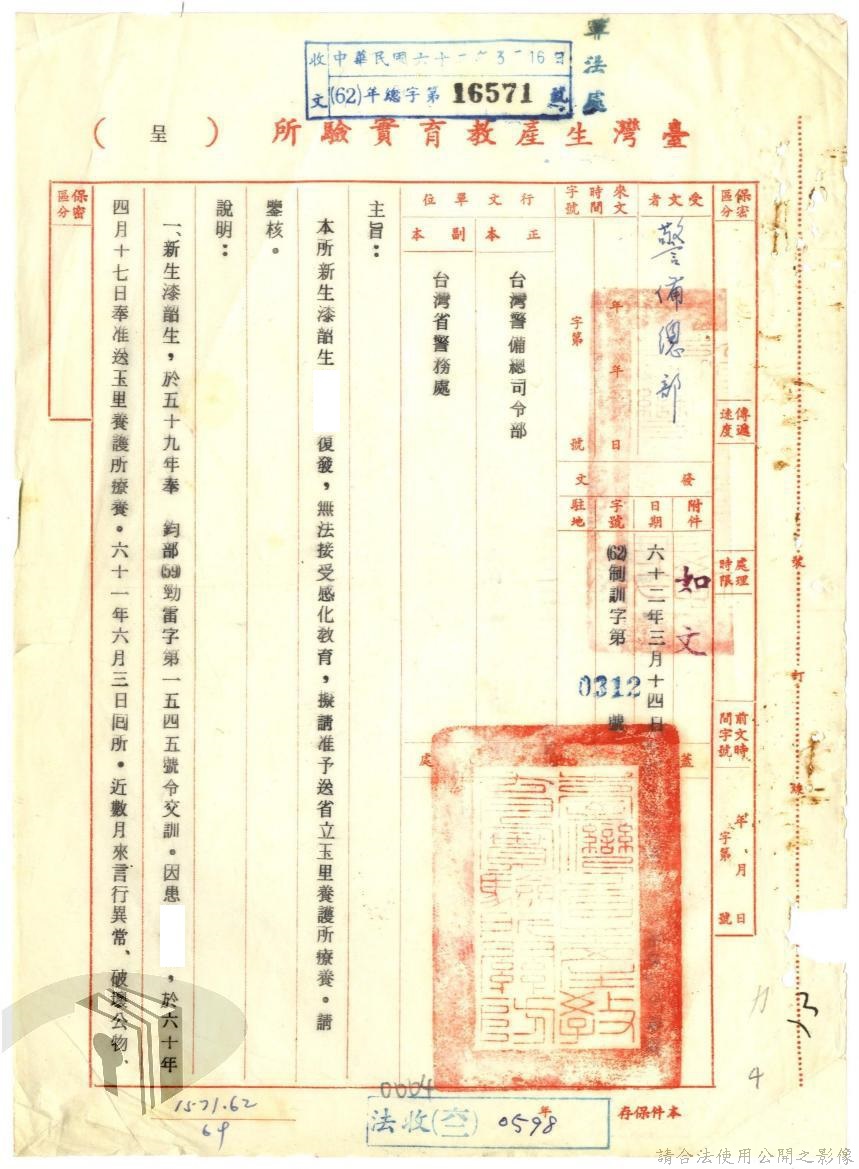 軍法處
收文 中華民國六十二年3月16日
(62)年總字第16571
臺灣生產教育實驗所（呈）
保密區分
傳遞速度
處理時限
前文時間字號 年、月 日 字第 號
受文者 警備總部
附件 如文
來文時間字號 年 年 日 字第 號
發文
日期 六十二年三月十四日
字號 (62)制訓字第0312號
駐地
行文單位
正本 台灣警備總司令部
副本 台灣省警務處
蓋
處
主旨：
本所新生漆韶生 復發，無法接受感化教育，擬請准予送省立玉里養護所療養。請
鑒核。
說明：
一、新生漆韶生，於五十九年奉 鈞部(59)勁雷字第一五四五號令交訓。因患 ，於六十年
四月十七日奉准送玉里養護所療養。六十一年六月三日回所。近數月來言行異常、破壞公物、
保密區分
裝
訂
線
4
1571.62
69
0004
法收(六二) 0598
本件保存 年
請合法使用公開之影像